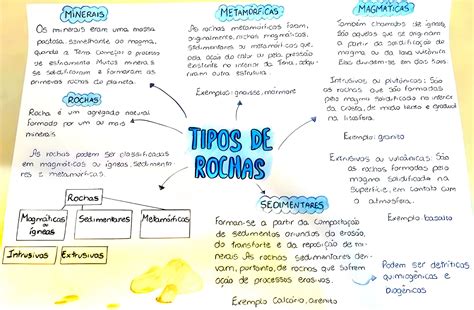 MINERAIS
Os minerais eram uma massa
pastosa, semelhante ao magma,
quando a Terra começou o processo
de esfriamento. Muitos minerais
se solidificaram e formaram as
primeiras rochas do planeta.
ROCHAS
Rocha é um agregado natural
formado por um ou mais
minerais.
As rochas podem ser classificadas
em magmáticas ou ígneas, sedimenta
res e metamórficas.
Rochas
Magmáticas
ou
ígneas
Sedimentares
Metamórficas
Intrusivas
Extrusivas
METAMÓRFICAS
As rochas metamórficas foram,
originalmente, rochas magmáticas,
sedimentares ou metamórficas que,
pela ação do calor ou pela pressão
existente no interior da Terra, adqui-
riram outra estrutura.
Exemplos: gnaisse, mármore
TIPOS DE
ROCHAS
MAGMÁTICAS
Também chamadas de ígneas,
são aquelas que se originam
a partir da solidificação do
magma ou da lava vulcânica
Elas dividem-se em dois tipos.
Intrusivas ou plutônicas: São
as rochas que são formadas
pelo magma solidificado no interior
da crosta, de modo lento e gradual
na litosfera.
Exemplo: granito
Extrusivas ou vulcânicas: São
as rochas formadas pelo
magma solidificado na
superfície, em contato com
a atmosfera.
Exemplo: basalto
SEDIMENTARES
Formam-se a partir da compactação
de sedimentos oriundos da erosão,
do transporte e da reposição de ro-
minerais. As rochas sedimentares deri-
vam, portanto, de rochas que sofrem
ação de processos erosivos.
Exemplo: Calcário, arenito
Podem ser detríticas
quimiogênicas e
biogênicas